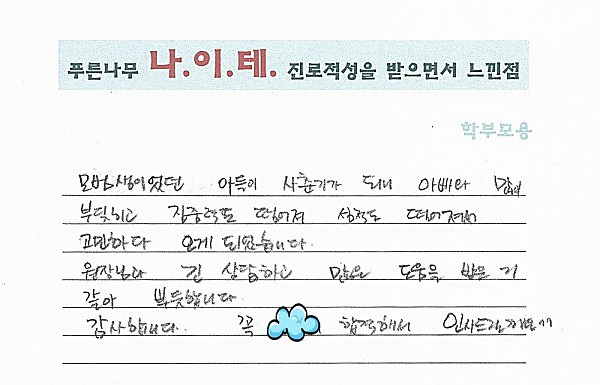 푸른나무 나.이.테. 진로적성을 받으면서 느낀점
학부모용
모범생이었던 아들이 사춘기가 되니 아빠와 많이
부딪히고 집중력도 떨어져 성적도 떨어져서
고민하다 오게 되었습니다.
원장님과 긴 상담하고 많은 도움을 받은 거
같아 뿌듯합니다
감사합니다. 꼭 합격해서 인사드릴께요^^